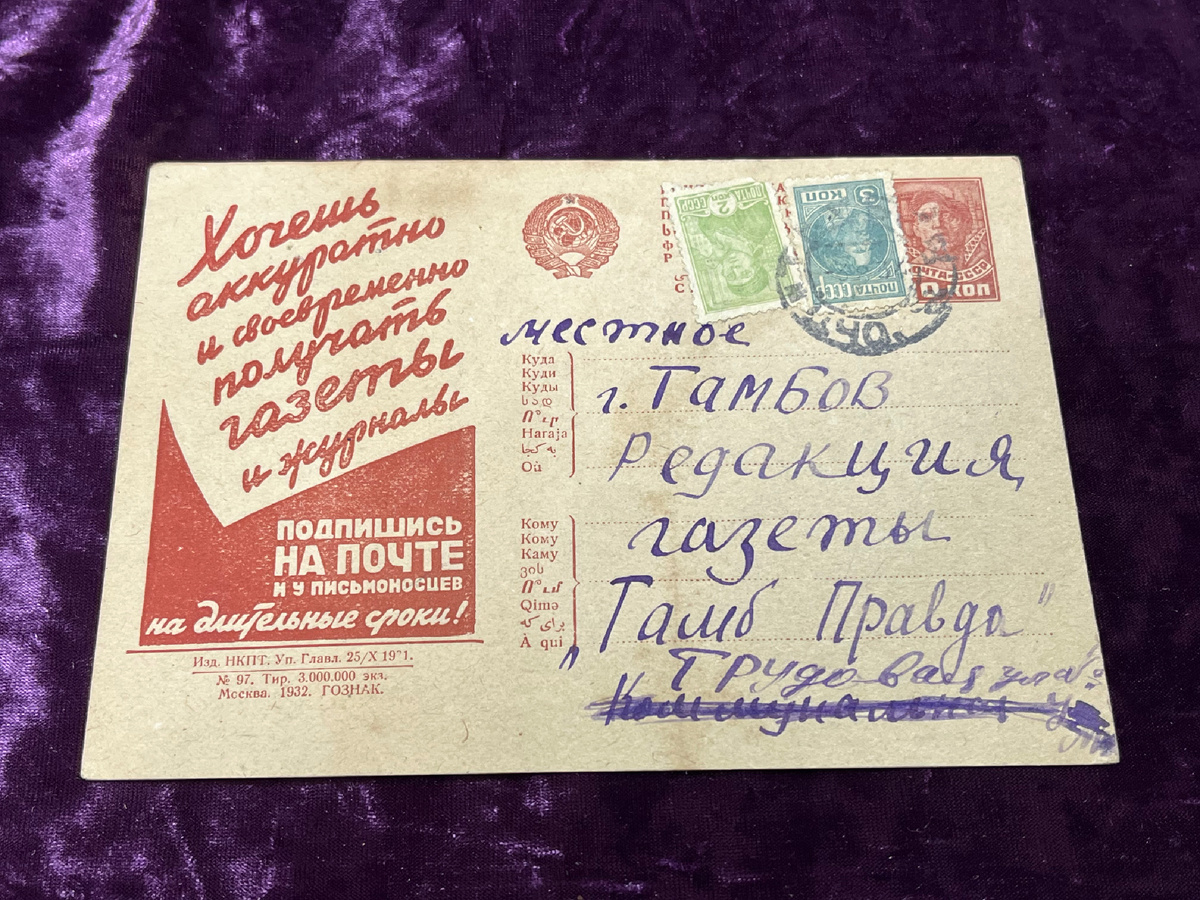 Хочешь
аккуратно
и своевременно
получать
газеты
и журналы
ПОДПИШИСЬ
НА ПОЧТЕ
И У ПИСЬМОНОСЦЕВ
на длительные сроки!
Изд. НКПТ. Уп. Главл. 25/X 1931.
№ 97. Тир. 3.000.000 экз.
Москва. 1932. ГОЗНАК.
ПОЧТА
2 КОП
СССР
3
КОП
ПОЧТА СССР
ПОЧТА СССР
10 КОП
местное
Куда
Куди
Куды
სად
Ո՞ւր
Haraja
به کجا
Où
г. Тамбов
Редакция
Кому
Кому
Каму
ვის
Ո՞ւմ
Qimə
برای که
À qui
газеты
"Тамб Правда"
Трудовая
Коммунальная